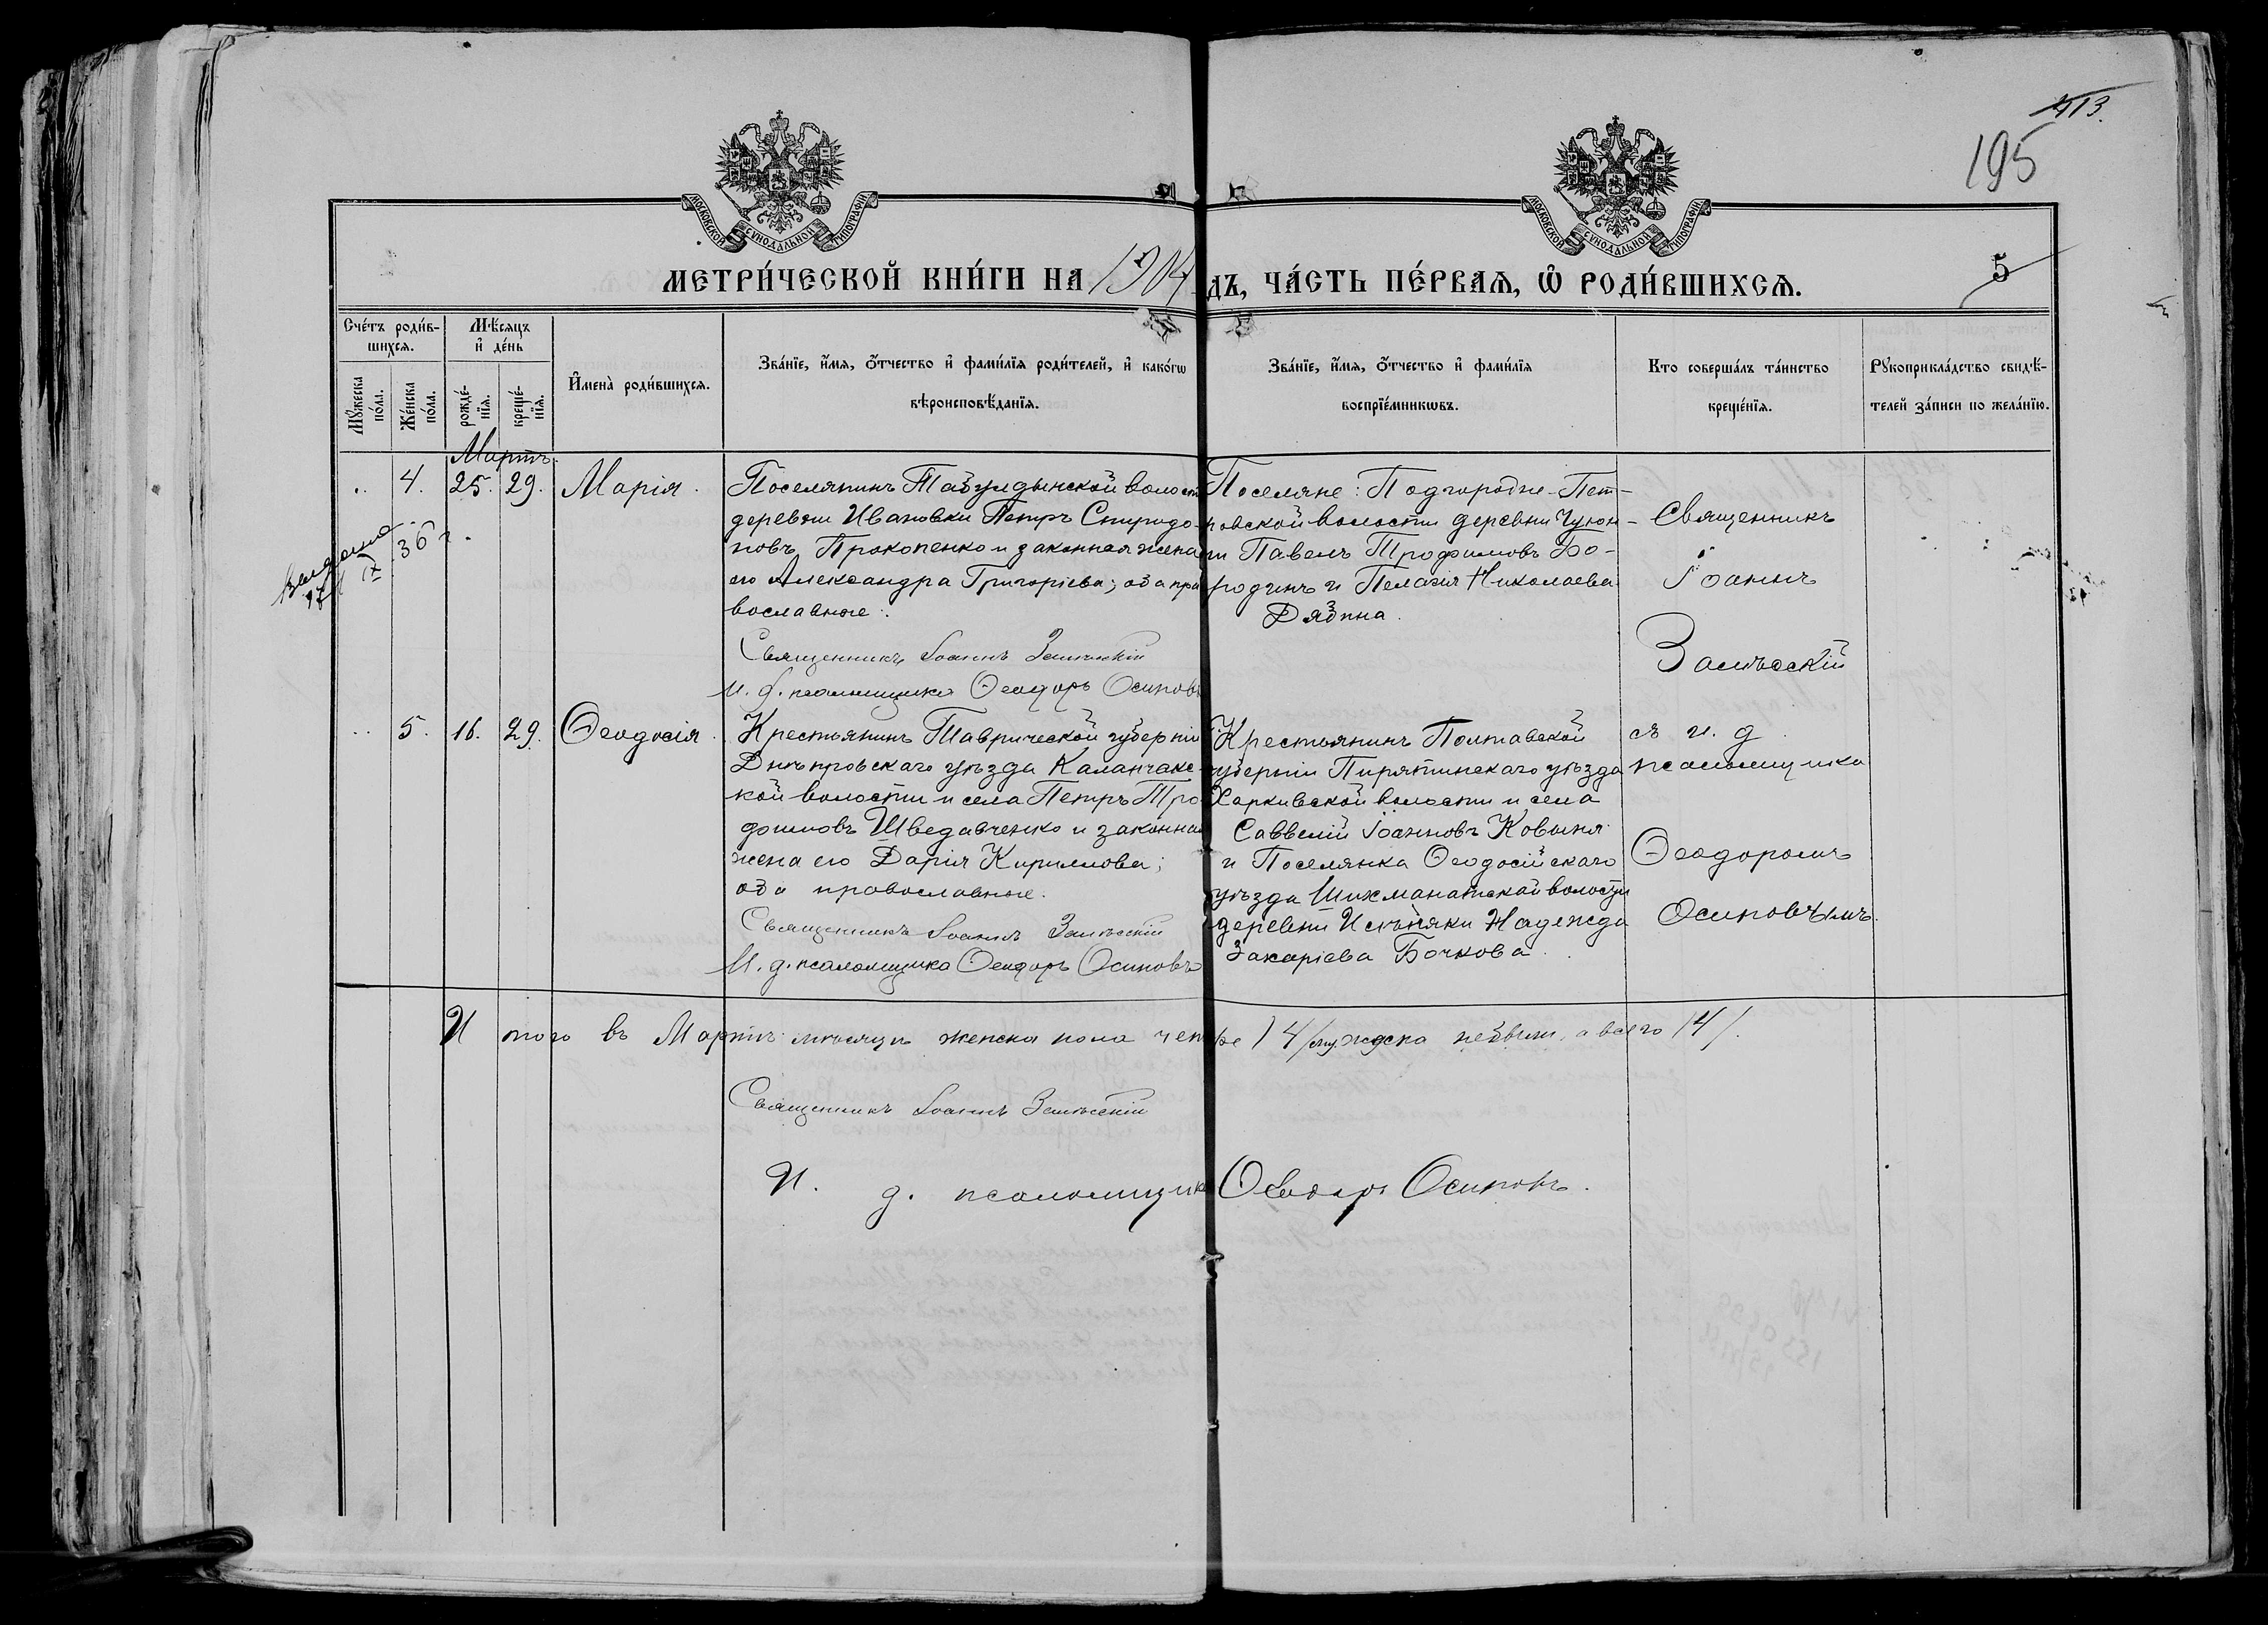 413.
195
МОСКОВСКОЙ СУНОДАЛЬНОЙ ТИПОГРАФІИ
МОСКОВСКОЙ СУНОДАЛЬНОЙ ТИПОГРАФІИ
МЕТРИ́ЧЕСКОЙ КНИ́ГИ НА 1904 ДЪ, ЧА́СТЬ ПЕ́РВАѦ, Ѡ҆ РОДИ́ВШИХСѦ.
5
Сче́тъ роди́в-
шихсѧ.
Мꙋ́жеска по́ла.
Же́нска по́ла.
Мѣ́сѧцъ
и҆ де́нь
рожде́-
нїѧ.
креще́-
нїѧ.
И҆мена̀ роди́вшихсѧ.
Зва́нїе, и҆́мѧ, ѻ҆́тчество и҆ фами́лїѧ роди́телей, и҆ како́гѡ
вѣроисповѣ́данїѧ.
Зва́нїе, и҆́мѧ, ѻ҆́тчество и҆ фами́лїѧ
воспрїе́мникѡвъ.
Кто соверша́лъ та́инство
креще́нїѧ.
Рꙋкоприкла́дство свидѣ́-
телей за́писи по жела́нїю.
Мартъ.
.. 4. 25. 29. Марія.
Поселянинъ Табулдынской волости
деревни Ивановки Петръ Спиридо-
новъ Прокопенко и законная жена
его Александра Григоріева; оба пра
вославные.
Священникъ Іоаннъ Залѣсскій
И. д. псаломщика Ѳеодоръ Осиповъ
Поселяне: Подгородне-Пет-
ровской волости деревни
Павелъ Трофимовъ Бо-
родинъ и Пелагія Николаева
Дябина.
Священникъ
Іоаннъ
Залѣсскій
36 г.
IX
.. 5. 16. 29. Ѳеодосія.
Крестьянинъ Таврической губерніи
Днѣпровскаго уѣзда Каланчакс-
кой волости и села Петръ Тро-
Шведавченко и законная
жена его Дарія Кириллова;
оба православные.
Священникъ Іоаннъ Залѣсскій
И. д. псаломщика Ѳеодоръ Осиповъ
Крестьянинъ Полтавской
губерніи Пирятинскаго уѣзда
Харкивской волости и села
Саввелій Іоанновъ Ковыня
и Поселянка Ѳеодосійскаго
уѣзда Шихманатской волости
деревни Надежда
Захаріева Бочкова.
съ и. д.
псаломщика
Ѳеодоромъ
Осиповымъ.
Итого въ Мартѣ мѣсяцѣ женска пола четыре /4/ мужеска небыли, а всего /4/.
Священникъ Іоаннъ Залѣсскій
И. д. псаломщика Ѳеодоръ Осиповъ.